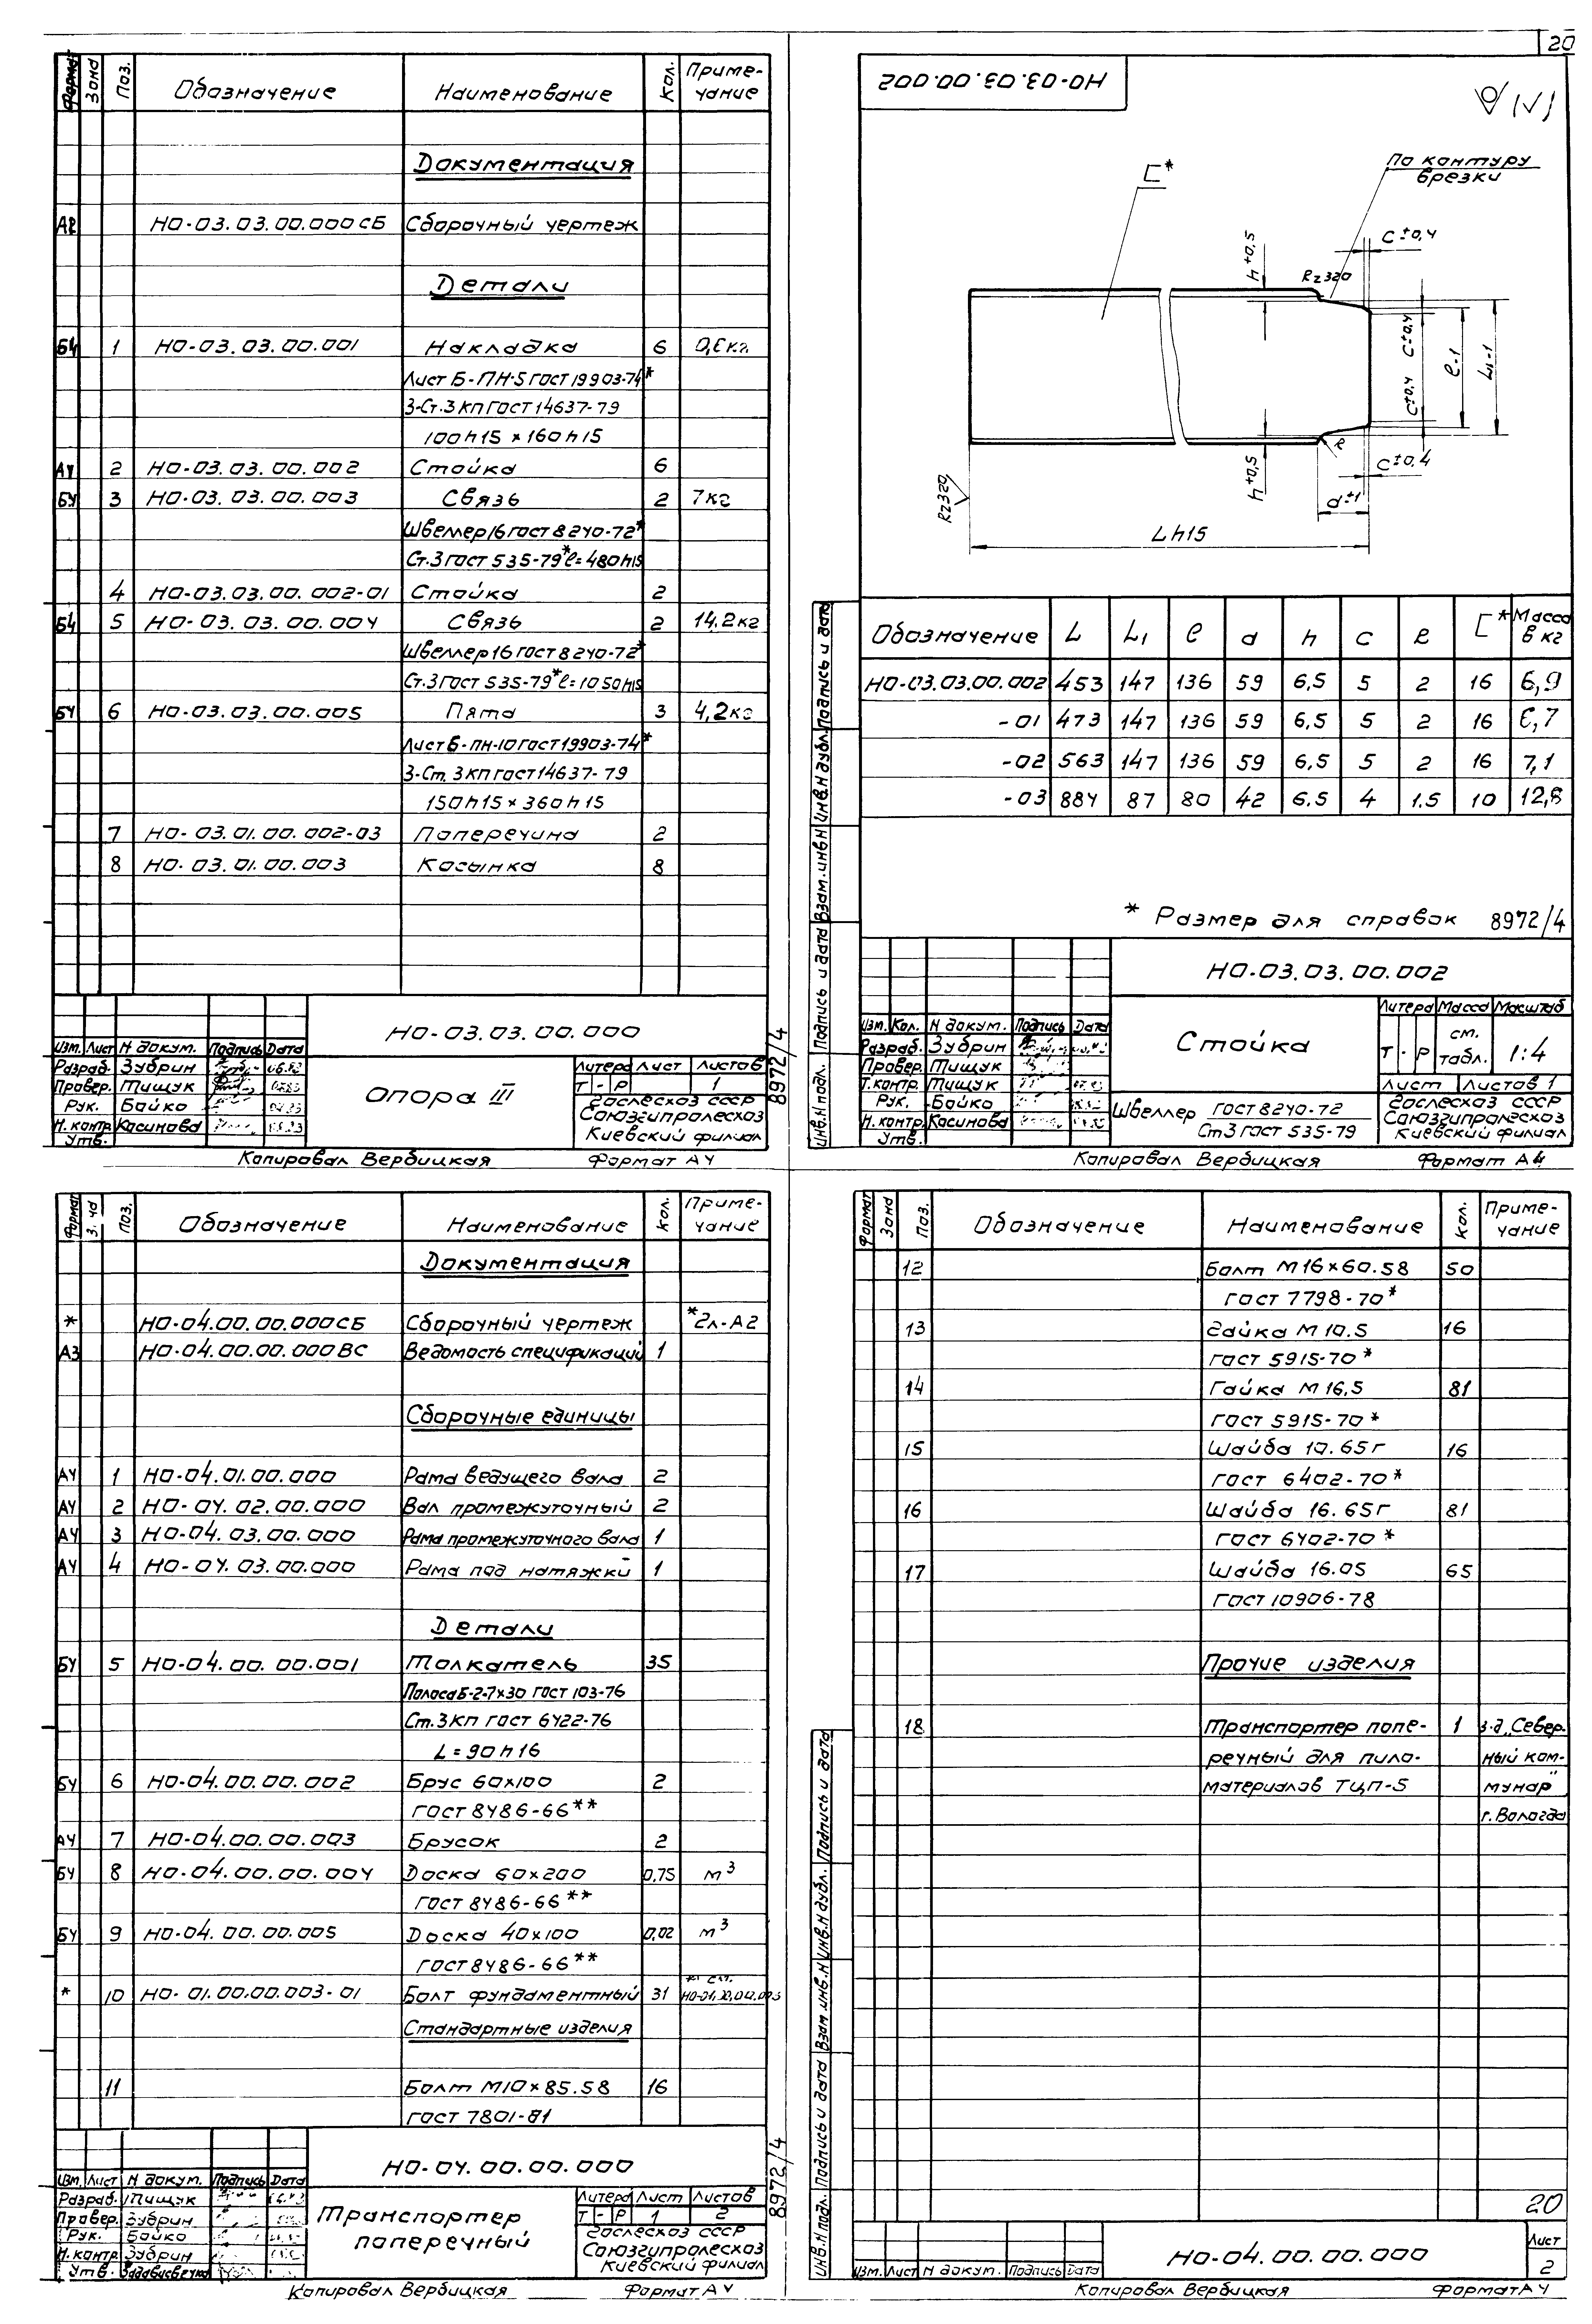 20
Формат Зона Поз. Обозначение Наименование Кол. Приме-
чание
Документация
А2 НО-03.03.00.000СБ Сборочный чертеж
Детали
Б4 1 НО-03.03.00.001 Накладка 6
Лист Б-ПН-5 ГОСТ 19903-74*
3-Ст.3 кп ГОСТ 14637-79
100h15 × 160h15
А4 2 НО-03.03.00.002 Стойка 6
Б4 3 НО-03.03.00.003 Связь 2 7кг
Швеллер 16 ГОСТ 8240-72*
Ст.3 ГОСТ 535-79* ℓ=480h15
4 НО-03.03.00.002-01 Стойка 2
Б4 5 НО-03.03.00.004 Связь 2 14,2кг
Швеллер 16 ГОСТ 8240-72*
Ст.3 ГОСТ 535-79* ℓ=1050h15
Б4 6 НО-03.03.00.005 Пята 3 4,2кг
Лист Б-ПН-10 ГОСТ 19903-74*
3-Ст.3 кп ГОСТ 14637-79
150h15 × 360h15
7 НО-03.01.00.002-03 Поперечина 2
8 НО-03.01.00.003 Косынка 8
НО-03.03.00.000
Изм. Лист N докум. Подпись Дата
Разраб. Зубрин
Провер. Тищук
Рук. Бойко
Н.контр. Касинова
Утв.
Опора III
Литера Лист Листов
Т - Р 1
Гослесхоз СССР
Союзгипролесхоз
Киевский филиал
8972/4
Копировал Вербицкая Формат А4
НО-03.03.00.002
(√)
[*
По контуру
врезки
c±0,4
h+0,5
Rz320
c±0,4
c±0,4
ℓ-1
L1-1
R
c±0,4
h+0,5
d±1
Rz320
Lh15
Обозначение L L1 ℓ d h c R [* Масса
в кг
НО-03.03.00.002 453 147 136 59 6,5 5 2 16 6,9
-01 473 147 136 59 6,5 5 2 16
-02 563 147 136 59 6,5 5 2 16 7,1
-03 884 87 80 42 6.5 4 1.5 10 12,8
* Размер для справок 8972/4
Инв.N подл. Подпись и дата Взам.инв N Инв.N дубл. Подпись и дата
НО-03.03.00.002
Изм. Кол. N докум. Подпись Дата
Разраб. Зубрин
Провер. Тищук
Т.контр. Тищук
Рук. Бойко
Н.контр. Касинова
Утв.
Стойка
Литера Масса Масштаб
Т - Р см.
табл. 1:4
Лист Листов 1
Швеллер ГОСТ 8240-72
Ст3 ГОСТ 535-79
Гослесхоз СССР
Союзгипролесхоз
Киевский филиал
Копировал Вербицкая Формат А4
Формат Поз. Обозначение Наименование Кол. Приме-
чание
Документация
* НО-04.00.00.000СБ Сборочный чертеж *2л-А2
А3 НО-04.00.00.000ВС Ведомость спецификаций 1
Сборочные единицы
А4 1 НО-04.01.00.000 Рама ведущего вала 2
А4 2 НО-04.02.00.000 Вал промежуточный 2
А4 3 НО-04.03.00.000 Рама промежуточного вала 1
А4 4 НО-04.03.00.000 Рама под натяжки 1
Детали
Б4 5 НО-04.00.00.001 Толкатель 35
Полоса Б-2-7×30 ГОСТ 103-76
Ст.3 кп ГОСТ 6422-76
L=90h16
Б4 6 НО-04.00.00.002 Брус 60×100 2
ГОСТ 8486-66**
А4 7 НО-04.00.00.003 Брусок 2
Б4 8 НО-04.00.00.004 Доска 60×200 0,75 м3
ГОСТ 8486-66**
Б4 9 НО-04.00.00.005 Доска 40×100 0,02 м3
ГОСТ 8486-66**
* 10 НО-01.00.00.003-01 Болт фундаментный 31
Стандартные изделия
11 Болт М10×85.58 16
ГОСТ 7801-81
НО-04.00.00.000
Изм. Лист N докум. Подпись Дата
Разраб. Тищук
Провер. Зубрин
Рук. Бойко
Н.контр. Зубрин
Утв.
Транспортер
поперечный
Литера Лист Листов
Т - Р 1 2
Гослесхоз СССР
Союзгипролесхоз
Киевский филиал
8972/4
Копировал Вербицкая Формат А4
Формат Зона Поз. Обозначение Наименование Кол. Приме-
чание
12 Болт М16×60.58 50
ГОСТ 7798-70*
13 Гайка М10.5 16
ГОСТ 5915-70*
14 Гайка М16,5 81
ГОСТ 5915-70*
15 Шайба 10.65г 16
ГОСТ 6402-70*
16 Шайба 16.65г 81
ГОСТ 6402-70*
17 Шайба 16.05 65
ГОСТ 10906-78
Прочие изделия
18 Транспортер попе- 1 з-д „Север.
речный для пило- ный ком-
материалов ТЦП-5 мунар"
г.Вологда
Инв.N подл. Подпись и дата Взам.инв.N Инв.N дубл. Подпись и дата
20
Изм. Лист N докум. Подпись Дата
НО-04.00.00.000
Лист
2
Копировал Вербицкая Формат А4